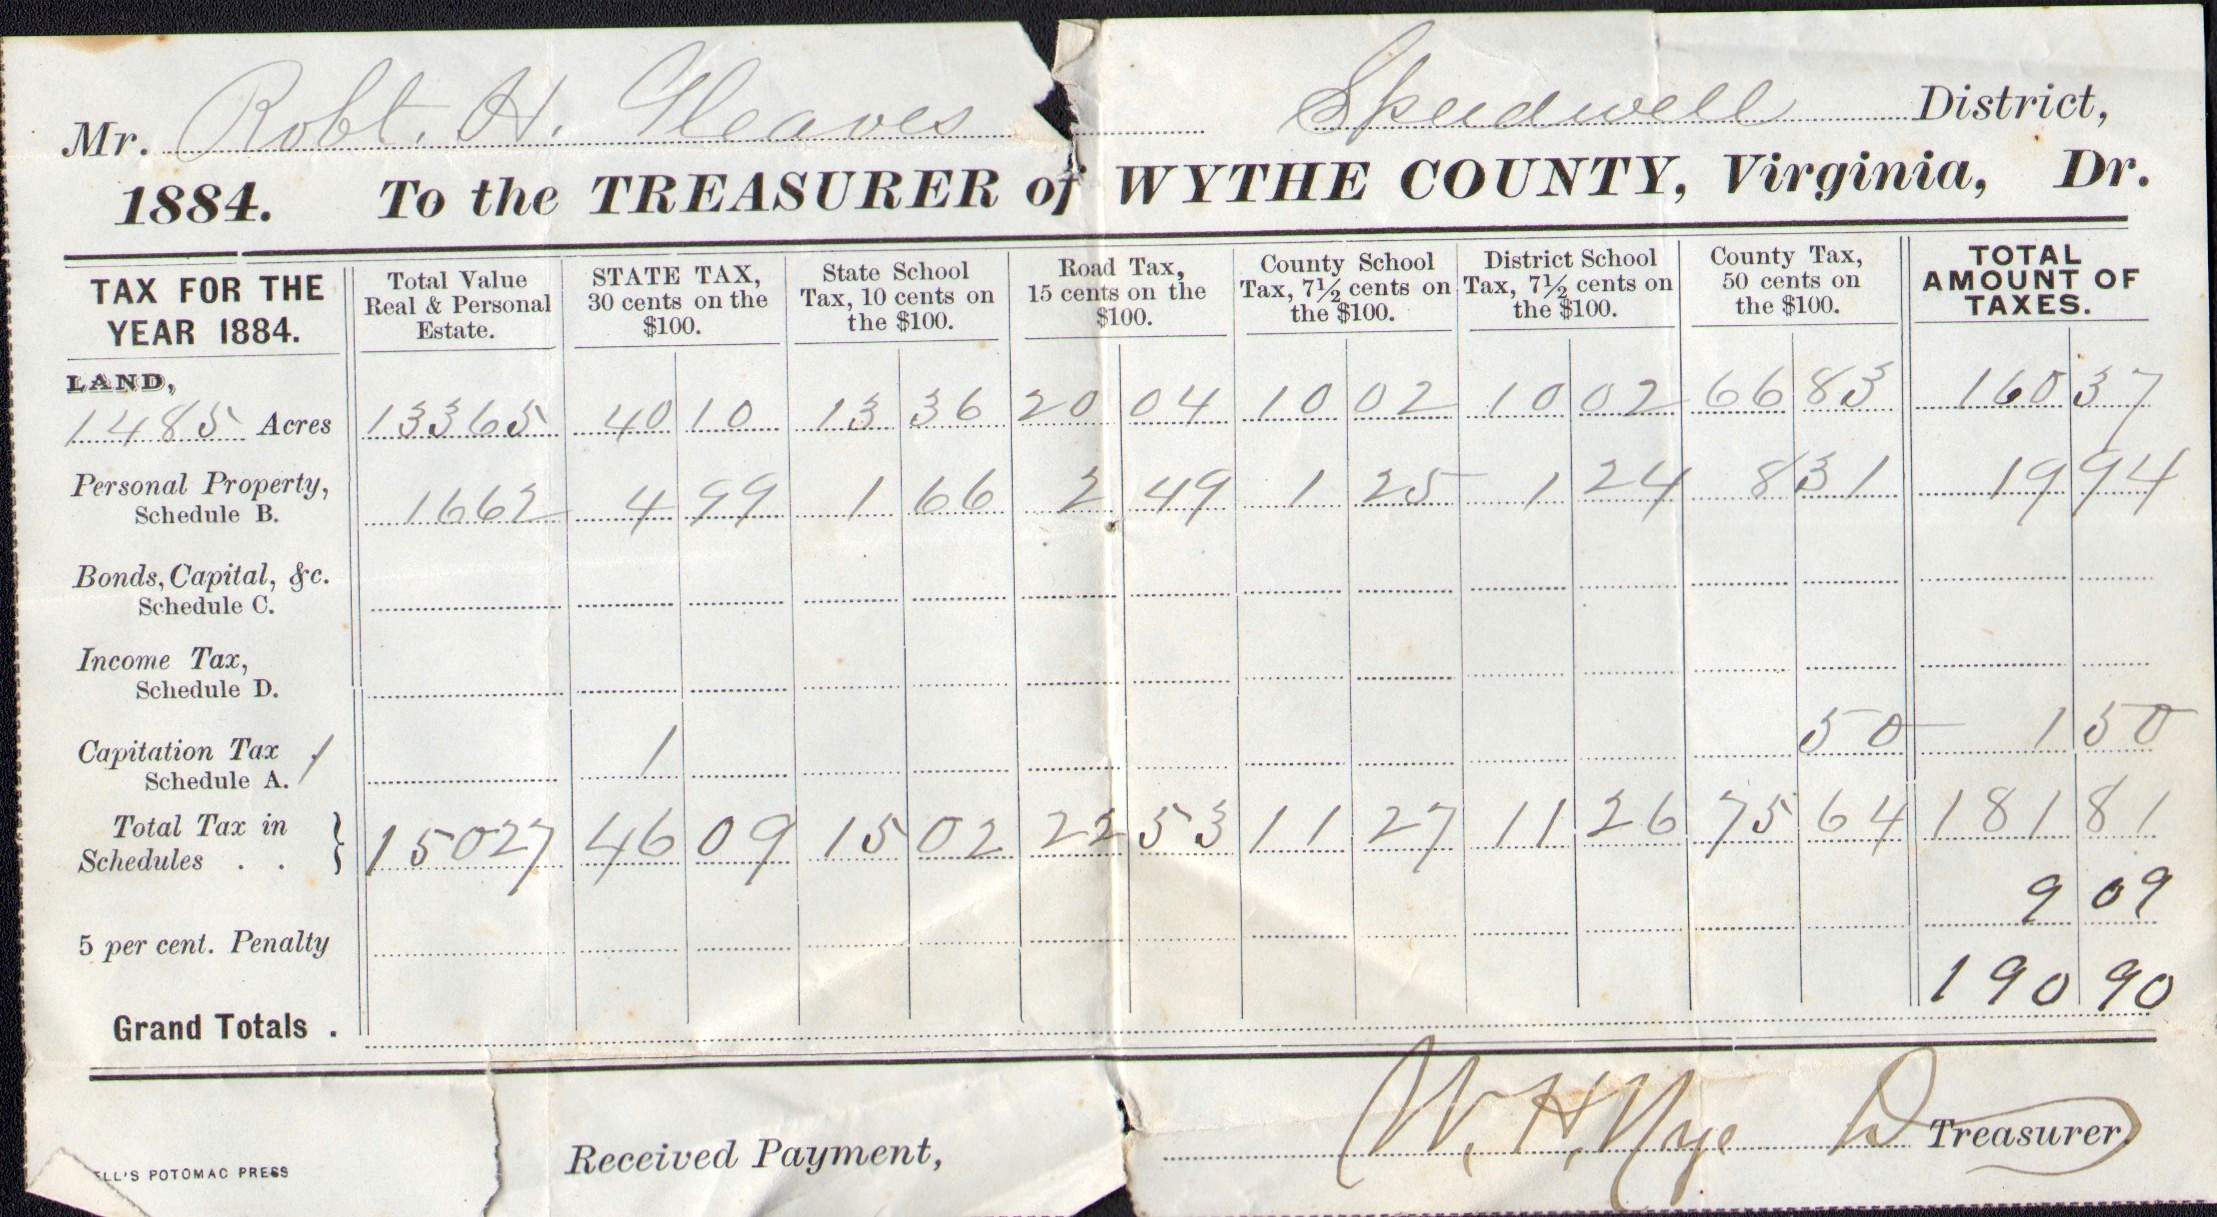 Mr. Robt. H. Gleaves Speedwell District,
1884. To the TREASURER of WYTHE COUNTY, Virginia, Dr.
TAX FOR THE YEAR 1884. Total Value Real & Personal Estate. STATE TAX, 30 cents on the $100. State School Tax, 10 cents on the $100. Road Tax, 15 cents on the $100. County School Tax, 7½ cents on the $100. District School Tax, 7½ cents on the $100. County Tax, 50 cents on the $100. TOTAL AMOUNT OF TAXES.
LAND,
1485 Acres 13365 40 10 13 36 20 04 10 02 10 02 66 83 160 37
Personal Property, Schedule B. 1662 4 99 1 66 2 49 1 25 1 24 8 31 19 94
Bonds, Capital, &c. Schedule C.
Income Tax, Schedule D.
Capitation Tax Schedule A. 1 1 50 1 50
Total Tax in Schedules . . } 15027 46 09 15 02 22 53 11 27 11 26 75 64 181 81
5 per cent. Penalty 9 09
Grand Totals . 190 90
Received Payment, W. H. Nye D Treasurer.
ELL'S POTOMAC PRESS